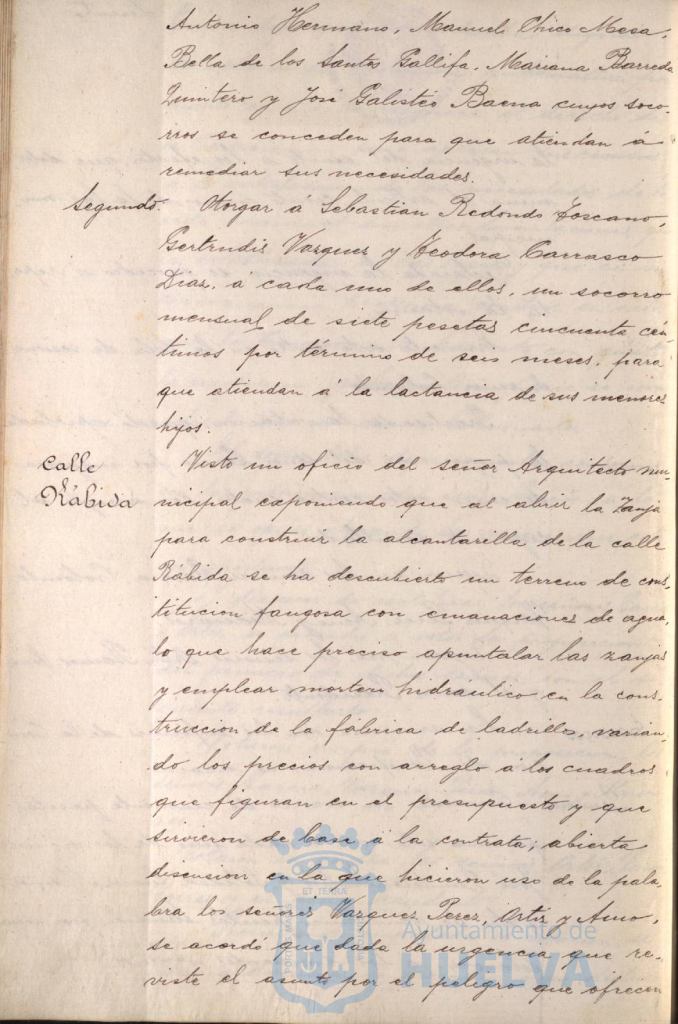 Antonio Hermano, Manuel Chico Mesa,
Bella de los Santos Gallifa, Mariana Barreda
Quintero y José Galisteo Baena cuyos soco-
rros se conceden para que atiendan á
remediar sus necesidades.
Segundo. Otorgar á Sebastian Redondo Toscano,
Gertrudis Vazquez y Teodora Carrasco
Diaz, á cada uno de ellos, un socorro
mensual de siete pesetas cincuenta cén-
timos por término de seis meses, para
que atiendan á la lactancia de sus menores
hijos.
Calle
Rábida
Visto un oficio del señor Arquitecto mu-
nicipal exponiendo que al abrir la zanja
para construir la alcantarilla de la calle
Rábida se ha descubierto un terreno de cons-
titucion fangosa con emanaciones de agua,
lo que hace preciso apuntalar las zanjas
y emplear mortero hidráulico en la cons-
truccion de la fábrica de ladrillo, varian-
do los precios con arreglo á los cuadros
que figuran en el presupuesto y que
sirvieron de base á la contrata; abierta
discusion en la que hicieron uso de la pala-
bra los señores Vazquez Perez, Ortiz y Amo,
se acordó que dada la urgencia que re-
viste el asunto por el peligro que ofrecen
Ayuntamiento de
HUELVA